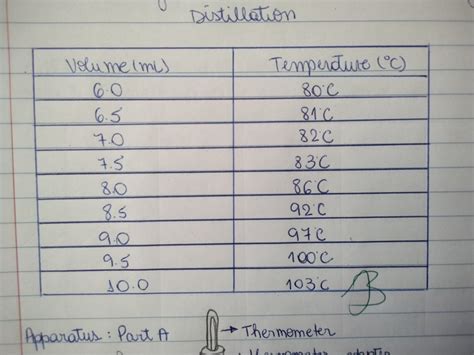 Distillation
Volume (mL) Temperature (°C)
6.0 80°C
6.5 81°C
7.0 82°C
7.5 83°C
8.0 86°C
8.5 92°C
9.0 97°C
9.5 100°C
10.0 103°C
Apparatus: Part A → Thermometer